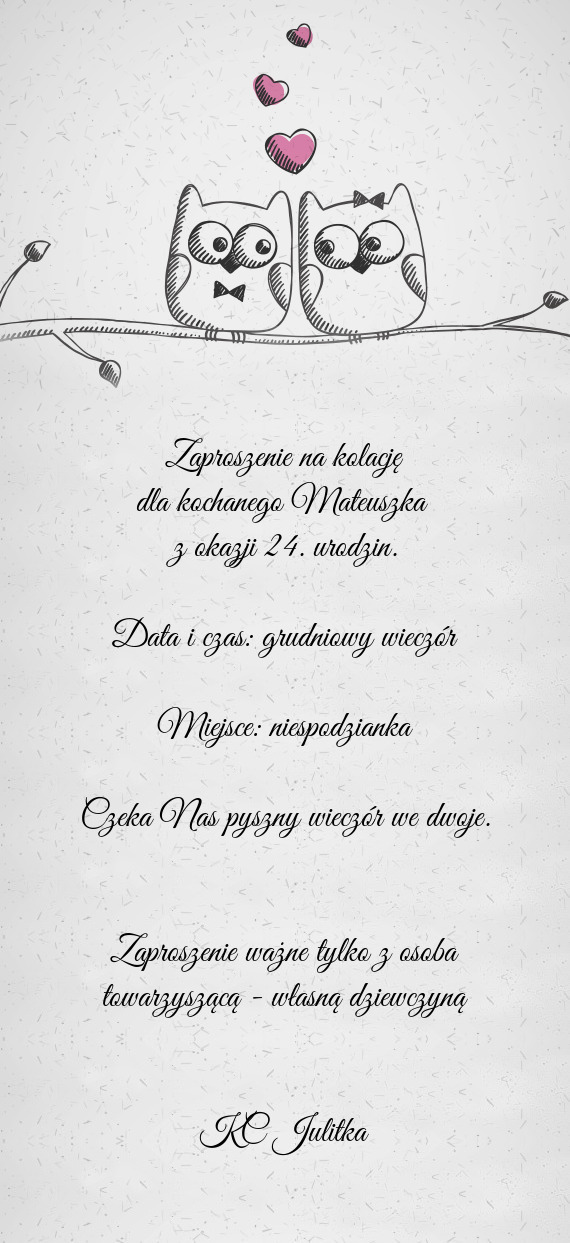 Zaproszenie na kolację
dla kochanego Mateuszka
z okazji 24. urodzin.
Data i czas: grudniowy wieczór
Miejsce: niespodzianka
Czeka Nas pyszny wieczór we dwoje.
Zaproszenie ważne tylko z osoba
towarzyszącą - własną dziewczyną
KC Julitka